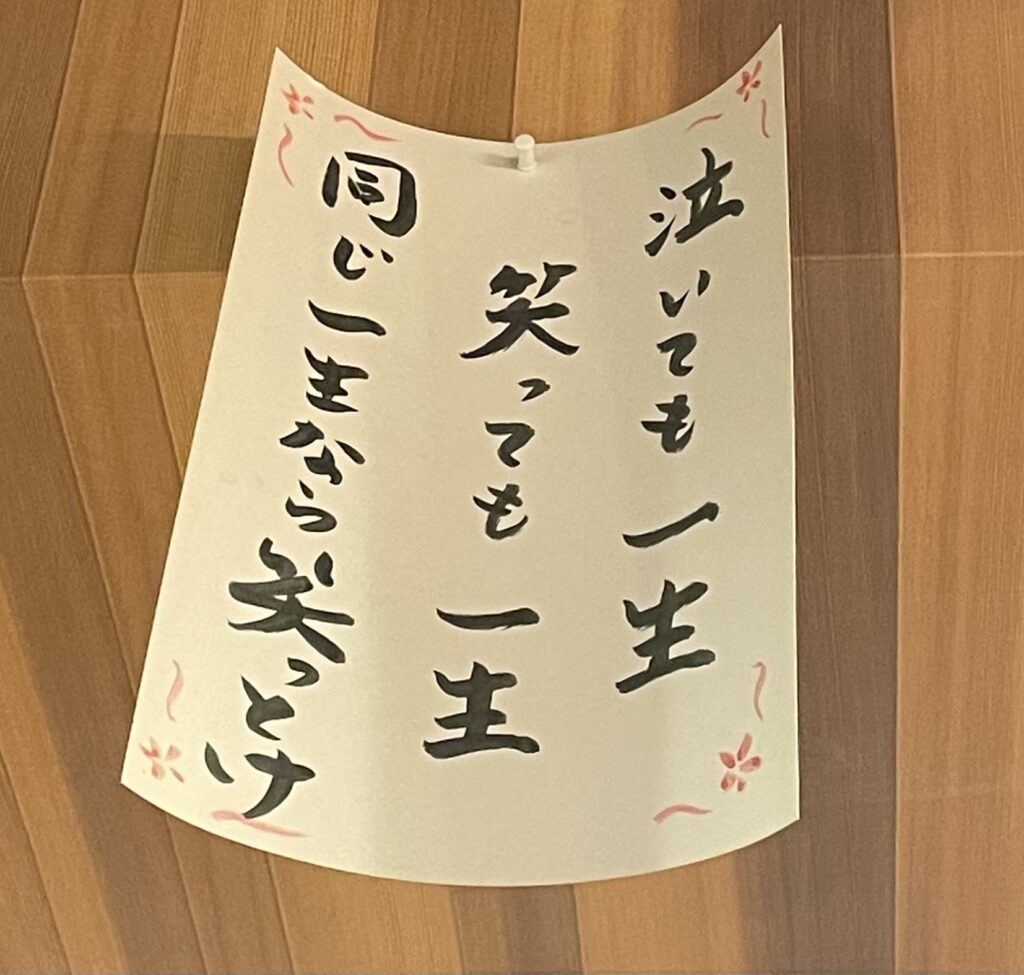 泣いても一生
笑っても一生
同じ一生なら笑っとけ